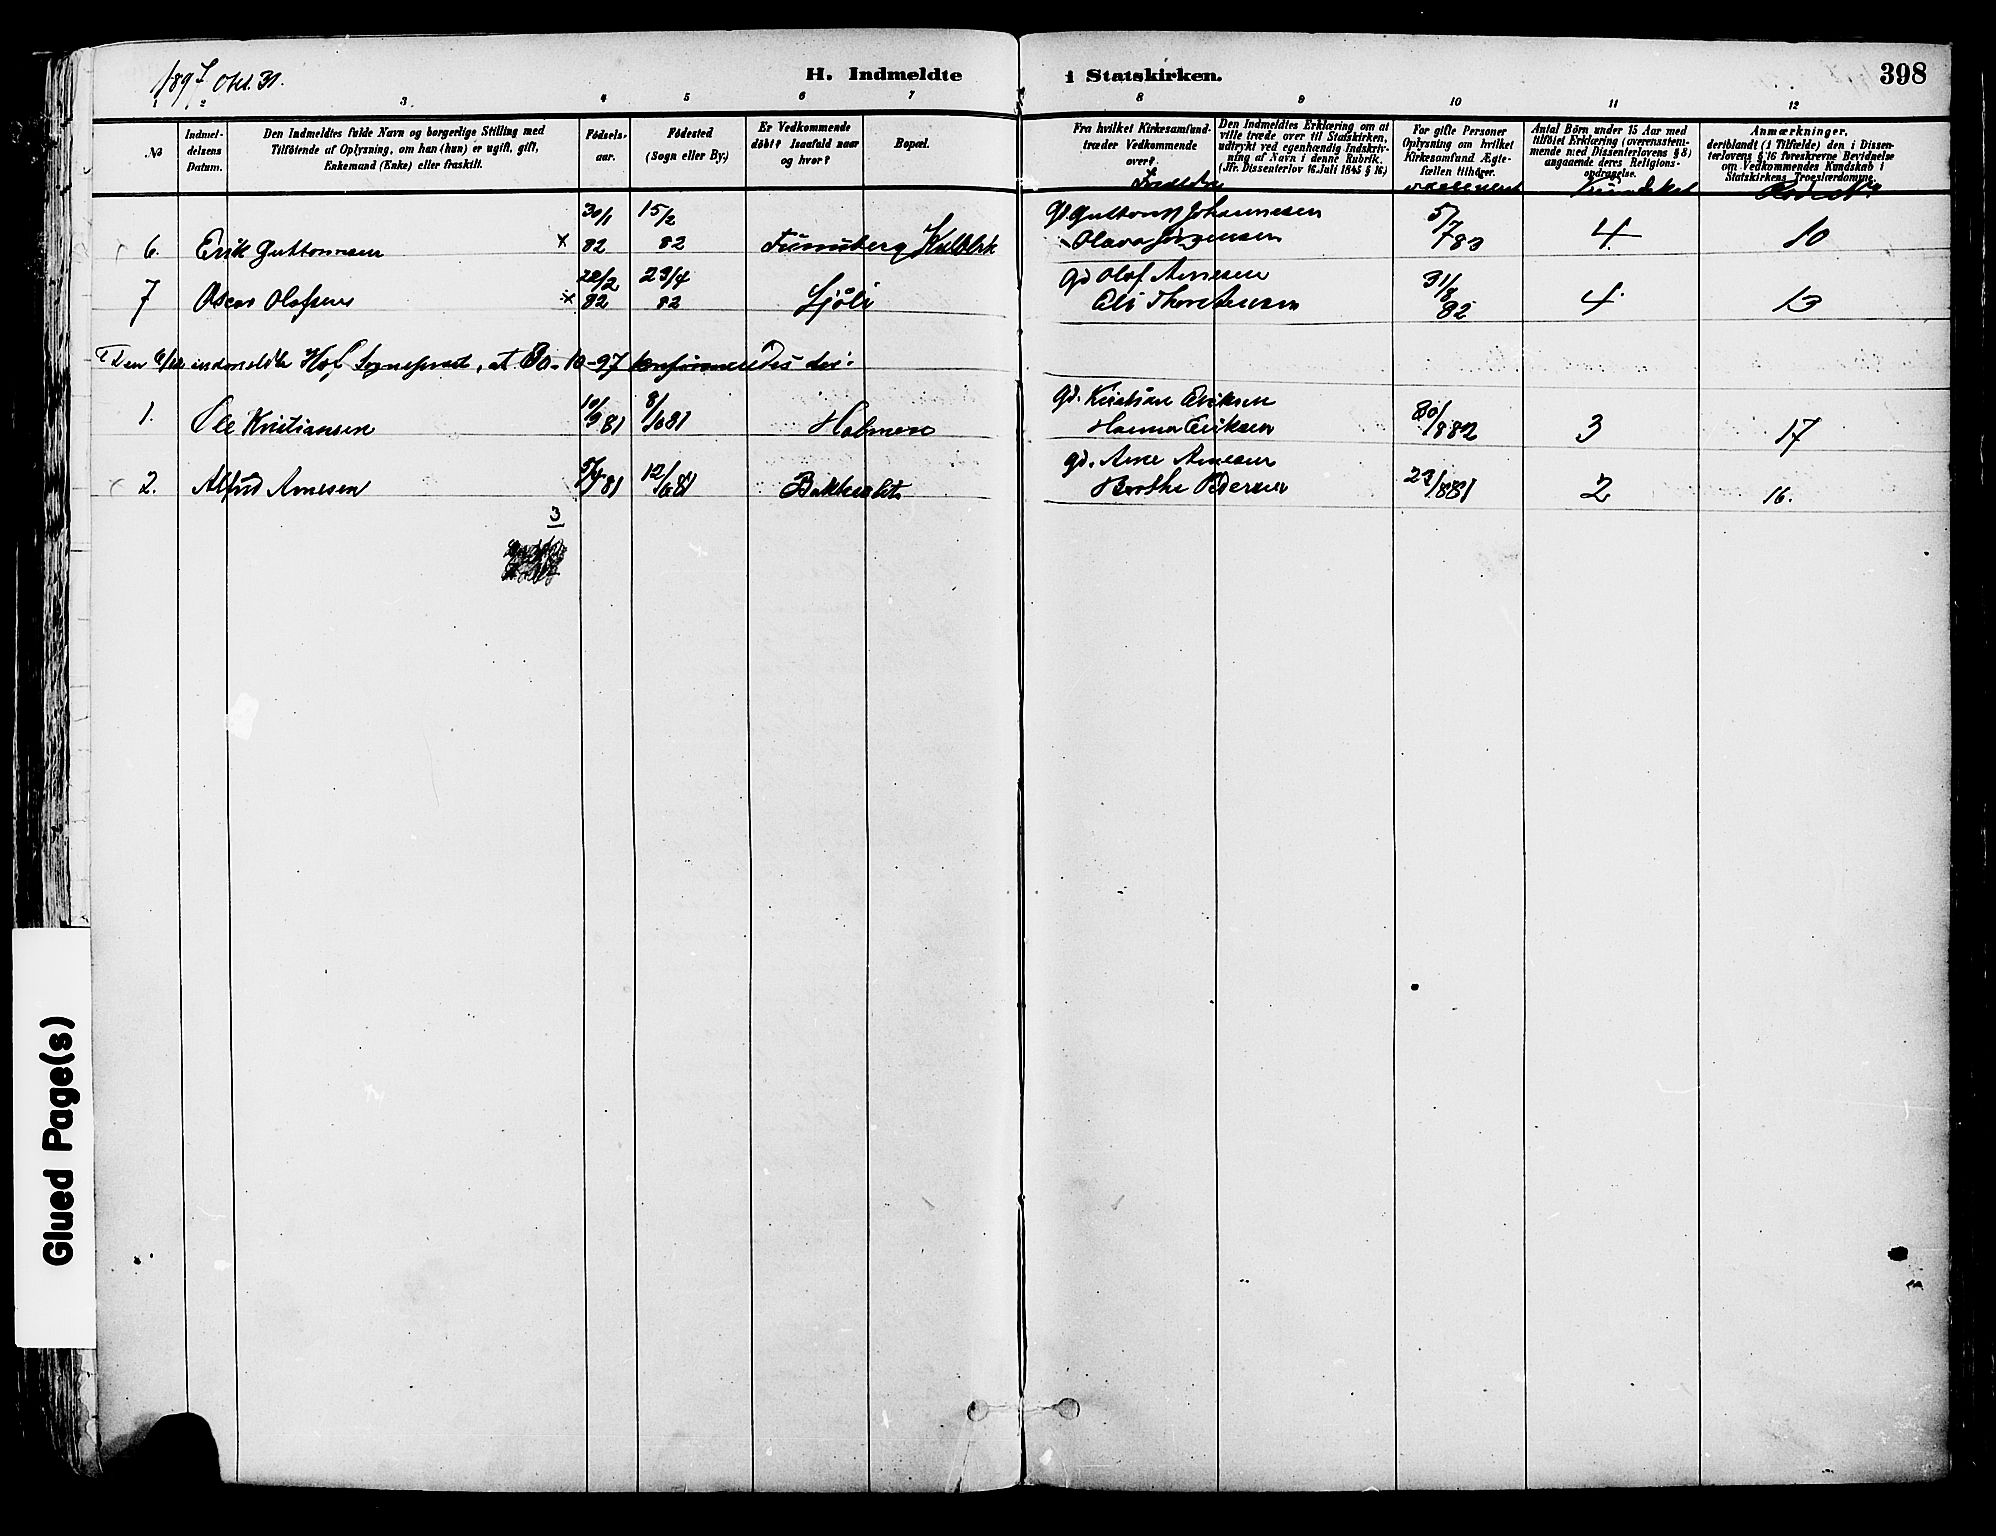 1897 Okt. 31.
H. Indmeldte i Statskirken.
398
1 2 3. 4 5 6 7 8 9 10 11 12
No
Indmel-
delsens
Datum.
Den Indmeldtes fulde Navn og borgerlige Stilling med
Tilföiende af Oplysning, om han (hun) er ugift, gift,
Enkemand (Enke) eller fraskilt.
Födsels-
aar.
Födested
(Sogn eller By.)
Er Vedkommende
döbt? Isaafald naar
og hvor?
Bopæl.
Fra hvilket Kirkesamfund
træder Vedkommende
over?
Forældre
Den Indmeldtes Erklæring om at
ville træde over til Statskirken,
udtrykt ved egenhændig Indskriv-
ning af Navn i denne Rubrik.
(Jfr. Dissenterlov 16 Juli 1845 § 16.)
For gifte Personer
Oplysning om hvilket
Kirkesamfund Ægte-
fællen tilhører.
vaccineret
Antal Börn under 15 Aar med
tilföiet Erklæring (overensstem-
mende med Dissenterlovens § 8)
angaaende deres Religions-
opdragelse.
Kundskab
Anmærkninger,
deriblandt (i Tilfælde) den i Dissen-
terlovens § 16 foreskrevne Bevidnelse
om Vedkommendes Kundskab i
Statskirkens Troeslærdomme.
6. Erik Guttormsen × 30/1 82 15/2 82 Gd. Guttorm Johannesen 5/7 83 4. 10
Olava Jörgensen
7 Oscar Olafsen × 22/2 82 23/4 82 Sjöli Gd Olof Arnesen 31/8 82 4. 13
Eli Thorstensen
indmeldte Hof Sognepræst, at 30-10-97 konfirmeredes der:
1. Ole Kristiansen 10/9 81 8/10 81 Holmen gd. Kristian Eriksen 30/8 82 3 17
Hanna Eriksen
2. Alfred Arnesen 5/4 81 12/6 81 gd. Arne Arnesen 23/8 81 2 16.
Berthe Pedersen
3
Glued Page(s)